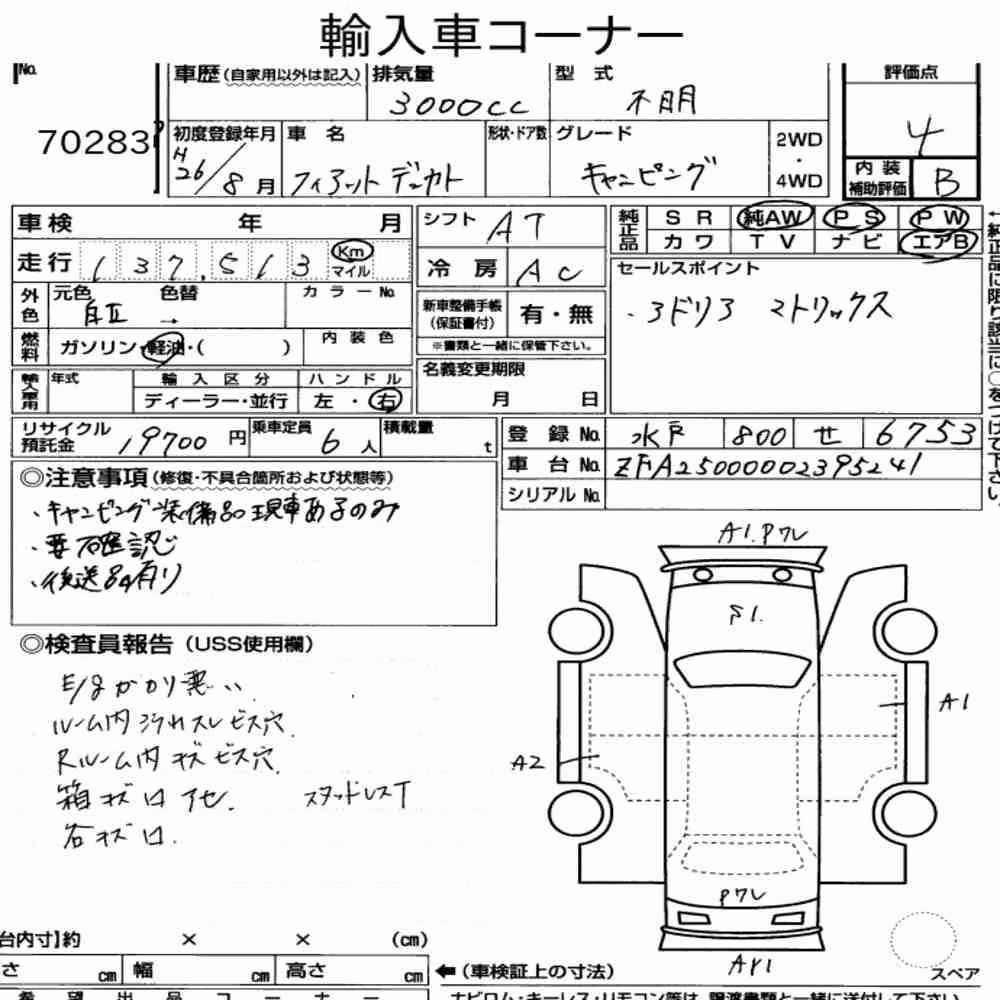 輸入車コーナー
No.
70283
車歴(自家用以外は記入)
排気量
3000cc
型式
不明
評価点
4
初度登録年月
H26/8月
車名
フィアット デュカト
形状・ドア数
グレード
キャンピング
2WD
・
4WD
内装
補助評価
B
車検 年 月
シフト
AT
純正品
SR 純AW PS PW
カワ TV ナビ エアB
走行
137,513
Km
マイル
冷房
AC
セールスポイント
外色
元色
色替
カラーNo.
新車整備手帳
(保証書付)
有・無
※書類と一緒に保管下さい。
燃料
ガソリン・軽油・( )
内装色
輸入車用
年式
輸入区分
ディーラー・並行
ハンドル
左・右
名義変更期限
月 日
リサイクル
預託金
19700円
乗車定員
6人
積載量
t
登録No.
水戸 800 せ 6753
車台No.
ZFA25000002395241
シリアルNo.
◎注意事項(修復・不具合箇所および状態等)
・キャンピング装備品現車あるのみ
・要確認
・後送品有り
◎検査員報告(USS使用欄)
E/gかかり悪い
ルーム内汚れスレビス穴
Rルーム内キズビス穴
箱キズ凹アセ. スタッドレスT
各キズ凹.
A1.Pワレ
F1.
A1
A2
Pワレ
AY1
スペア
台内寸】約 × × (cm)
さ cm 幅 cm 高さ cm
←(車検証上の寸法)
希望出品コーナー
ナビロム・キーレス・リモコン等は、譲渡書類と一緒に送付して下さい。
←純正品に限り該当に○をつけて下さい。